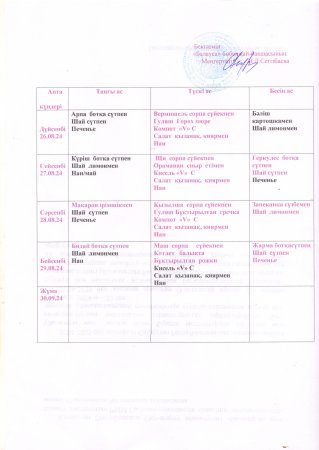 Бекітемін
Апта
күндері
Таңғы ас
Түскі ас
Бесін ас
Дүйсенбі
26.08.24
Арпа ботқа сүтпен
Шай сүтпен
Печенье
Вермишель сорпа сүйекпен
Гуляш Горох пюре
Компот «V» С
Салат қызанақ, қиярмен
Нан
Бәліш
картошкамен
Шай лимонмен
Сейсенбі
27.08.24
Күріш ботқа сүтпен
Шай лимонмен
Нан/май
Щи сорпа сүйекпен
Кисель «V» С
Салат қызанақ, қиярмен
Нан
Геркулес ботқа
сүтпен
Шай сүтпен
Печенье
Сәрсенбі
28.08.24
Макарон ірімшікпен
Шай сүтпен
Печенье
Қызылша сорпа сүйекпен
Гуляш Бұқтырылған гречка
Компот «V» С
Салат қызанақ, қиярмен
Нан
Запеканка сүзбемен
Шай лимонмен
Бейсенбі
29.08.24
Бидай ботқа сүтпен
Шай лимонмен
Нан
Маш сорпа сүйекпен
Котлет балықты
Бұқтырылған рожки
Кисель «V» С
Салат қызанақ, қиярмен
Нан
Жарма ботқасүтпен
Шай сүтпен
Печенье
Жұма
30.09.24